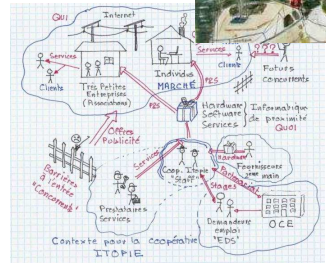 QUI
Internet
Services
Clients
Très Petites
Entreprises
(Associations)
Individus
MARCHÉ
Services
Clients
???
Futurs
concurrents
P2S
P2S
Hardware
Software
Services
Informatique
de proximité
QUOI
Offres
Publicité
Barrières
à l'entrée
"Concurrents"
Services
Coop. Itopie
"Staff"
Hardware
Fournisseurs
1ère main
Partenariat
Stages
Prestataires
Services
Demandeurs
emploi
"EDS"
OCE
Contexte pour la coopérative
ITOPIE